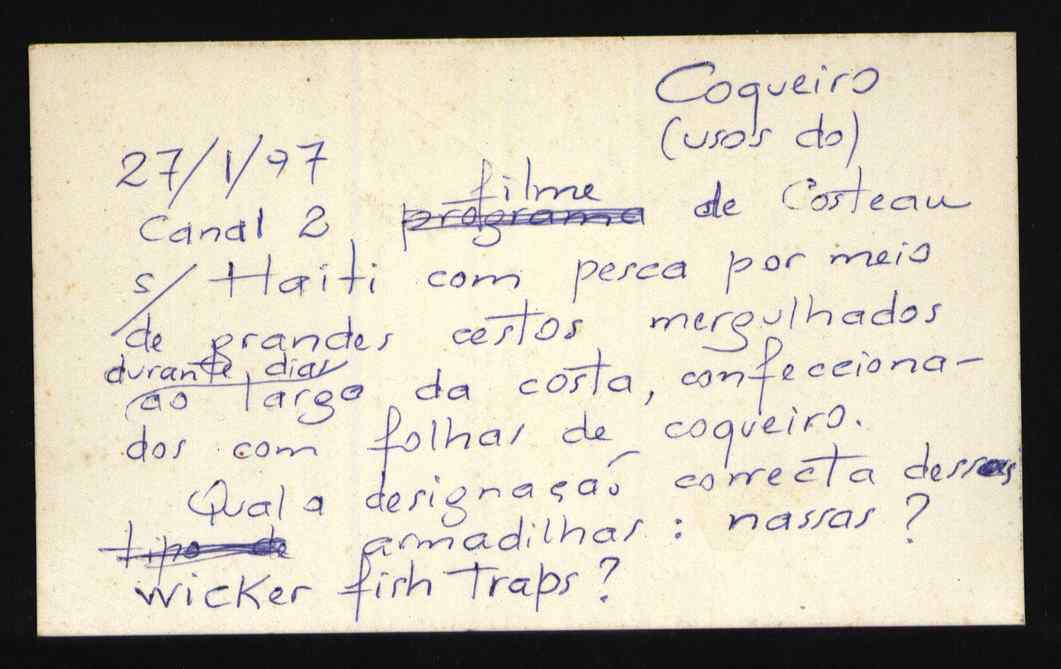 Coqueiro
(usos do)
27/1/97
filme
Canal 2 programa de Costeau
s/ Haiti com pesca por meio
de grandes cestos mergulhados
durante dias
ao largo da costa, confecciona-
dos com folhas de coqueiro.
Qual a designação correcta dessas
tipo de armadilhas : nassas ?
wicker fish traps ?